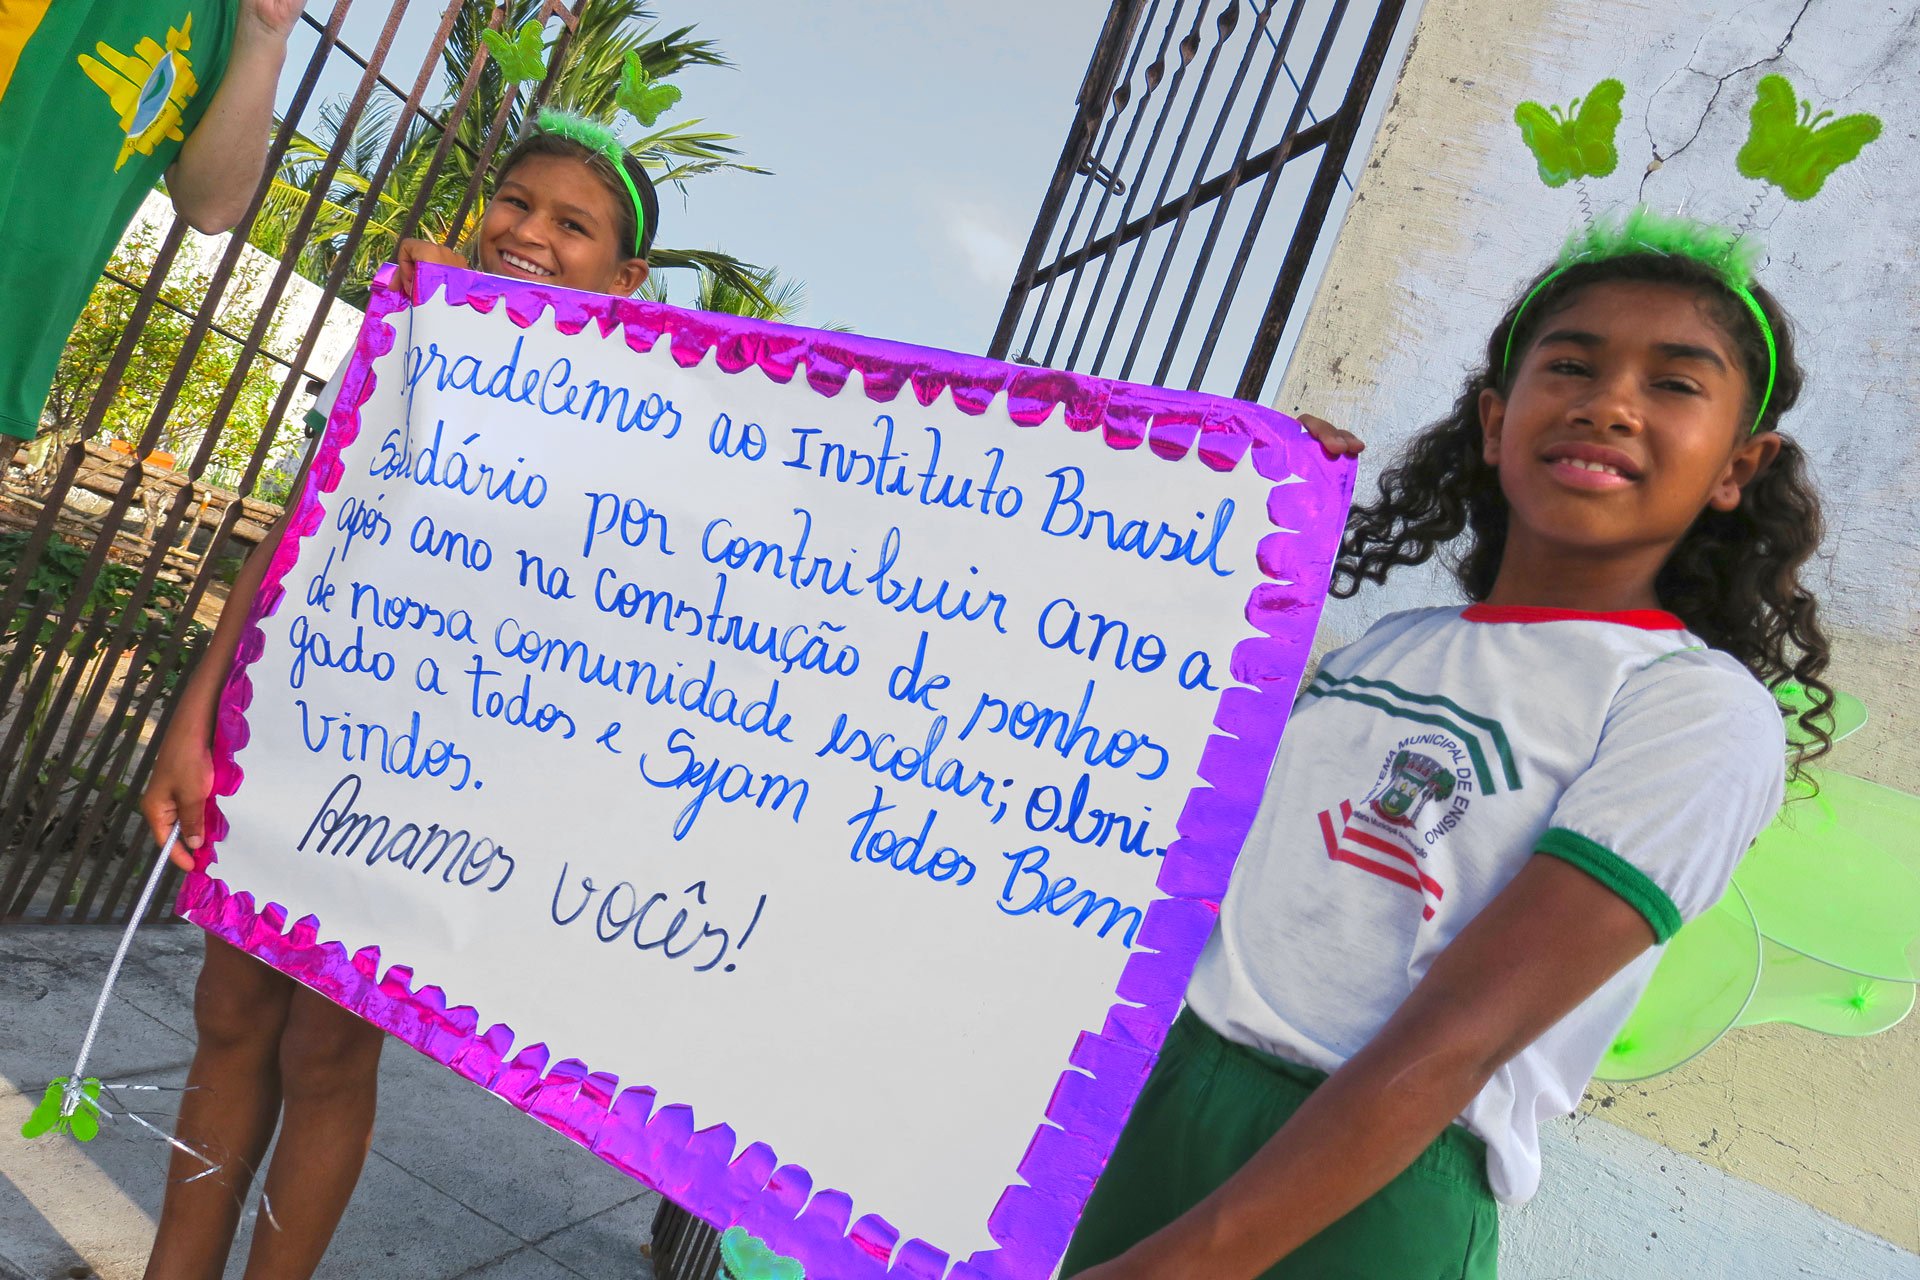 Agradecemos ao Instituto Brasil
Solidário por contribuir ano a
após ano na construção de sonhos
de nossa comunidade escolar; obri-
gado a todos e Sejam todos Bem
Vindos.
Amamos vocês!
SISTEMA MUNICIPAL DE ENSINO